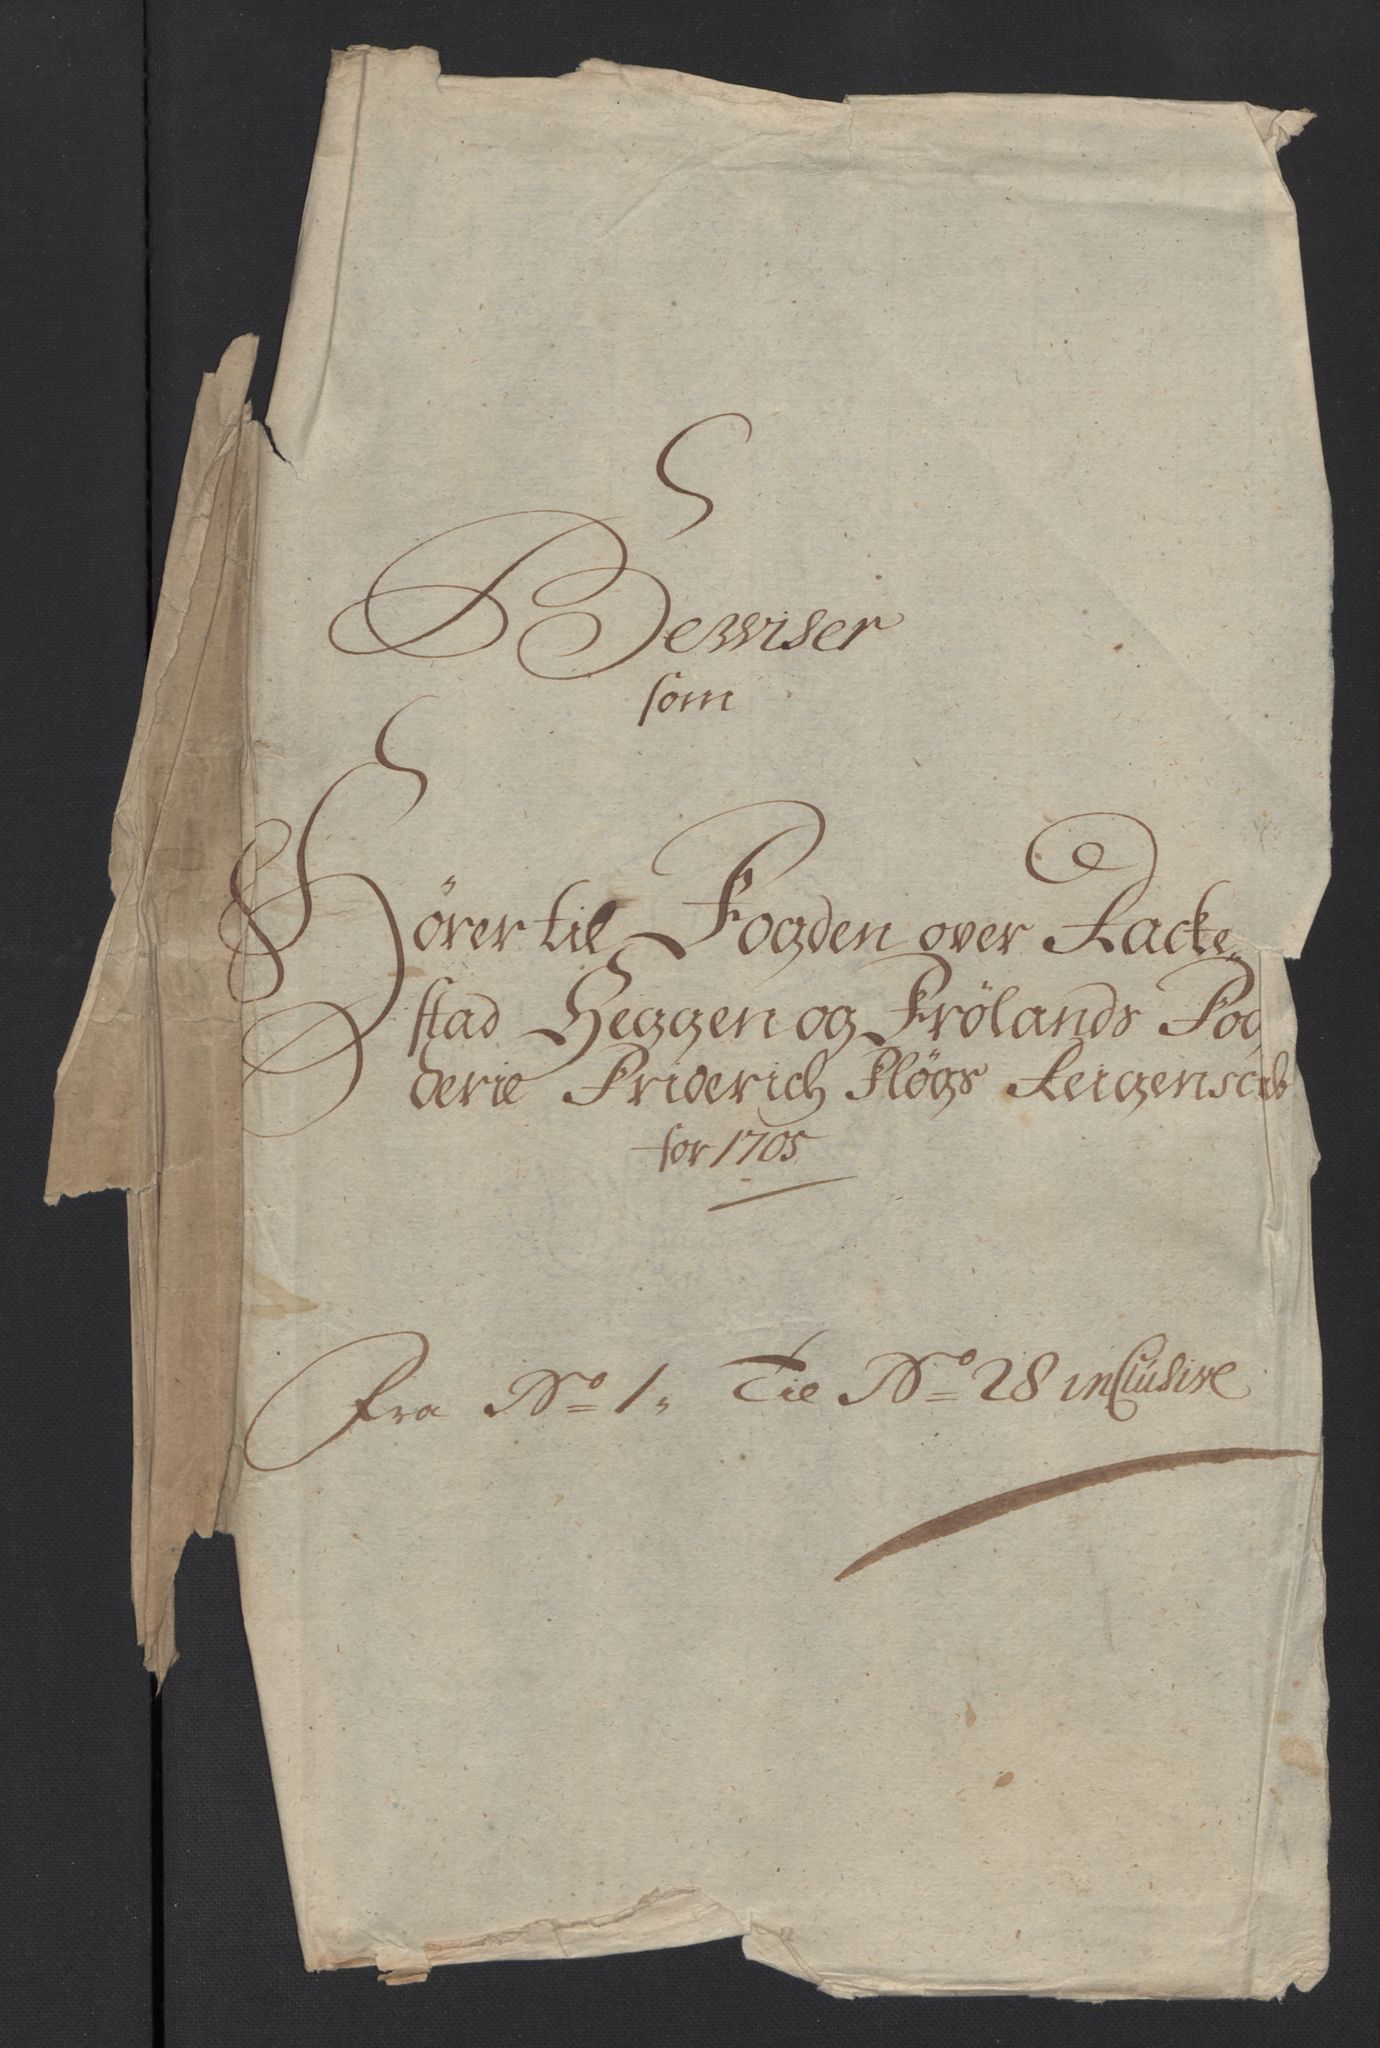 Bewiser
som
Hörer til Fogden over Racke„
stad Heggen og Frölands Fog
derie Friderich Pløgs Reigensch
for 1705
Fra No 1. Til No 28 inclusive